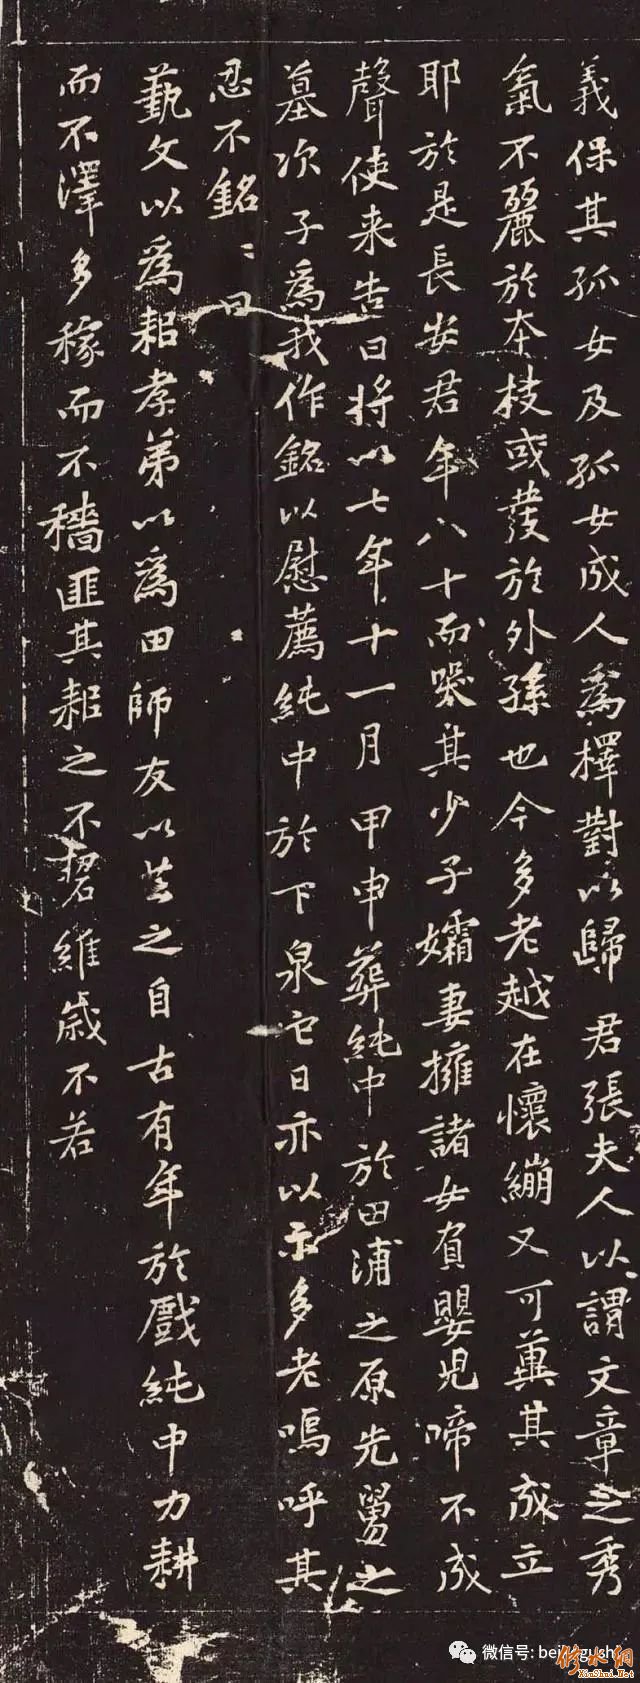 義保其孤女及孤女成人為擇對以歸 君張夫人以謂文章之秀
氣不麗於本枝或發於外孫也今多老越在懷繃又可冀其成立
耶於是長安君年八十而哭其少子孀妻擁諸女負嬰兒啼不成
聲使来告曰将以七年十一月 甲申葬純中於田浦之原先舅之
墓次子為我作銘以慰薦純中於下泉它日亦以示多老嗚呼其
忍不銘〻曰
藝文以為耜孝弟以為田師友以芸之自古有年於戲純中力耕
而不澤多稼而不穡匪其耜之不 維歲不若
微信号: bei
修水網
XiuShui.Net